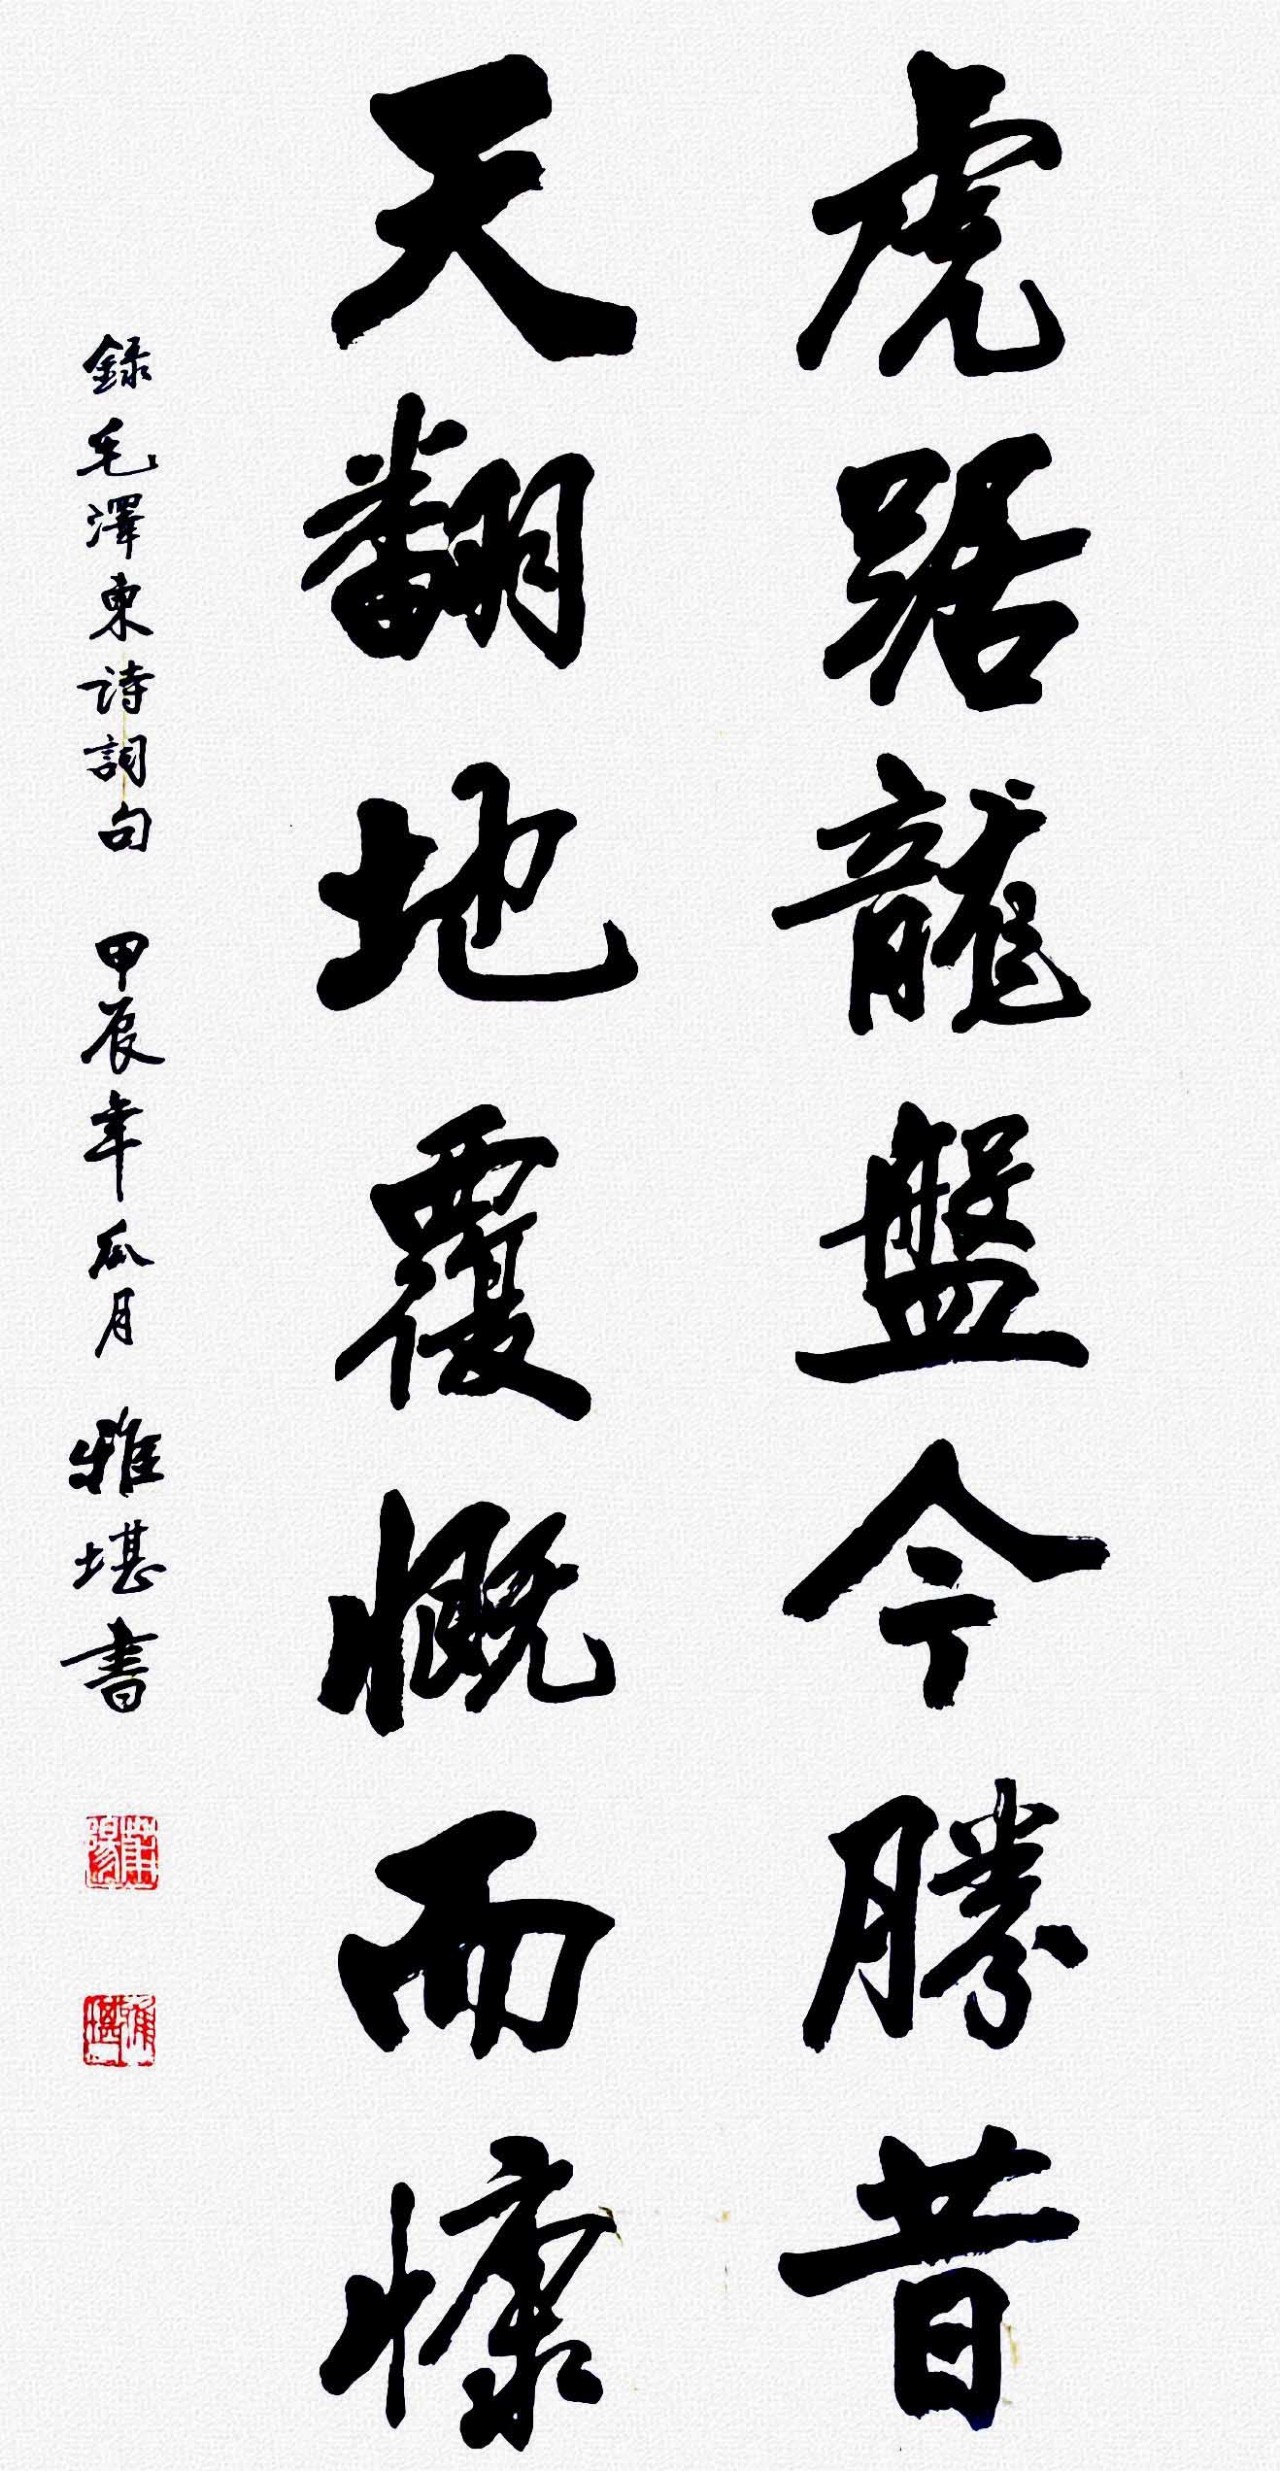 虎踞龍盤今勝昔
天翻地覆慨而慷
錄毛澤東詩詞句 甲辰年瓜月 雅堪書
雅堪